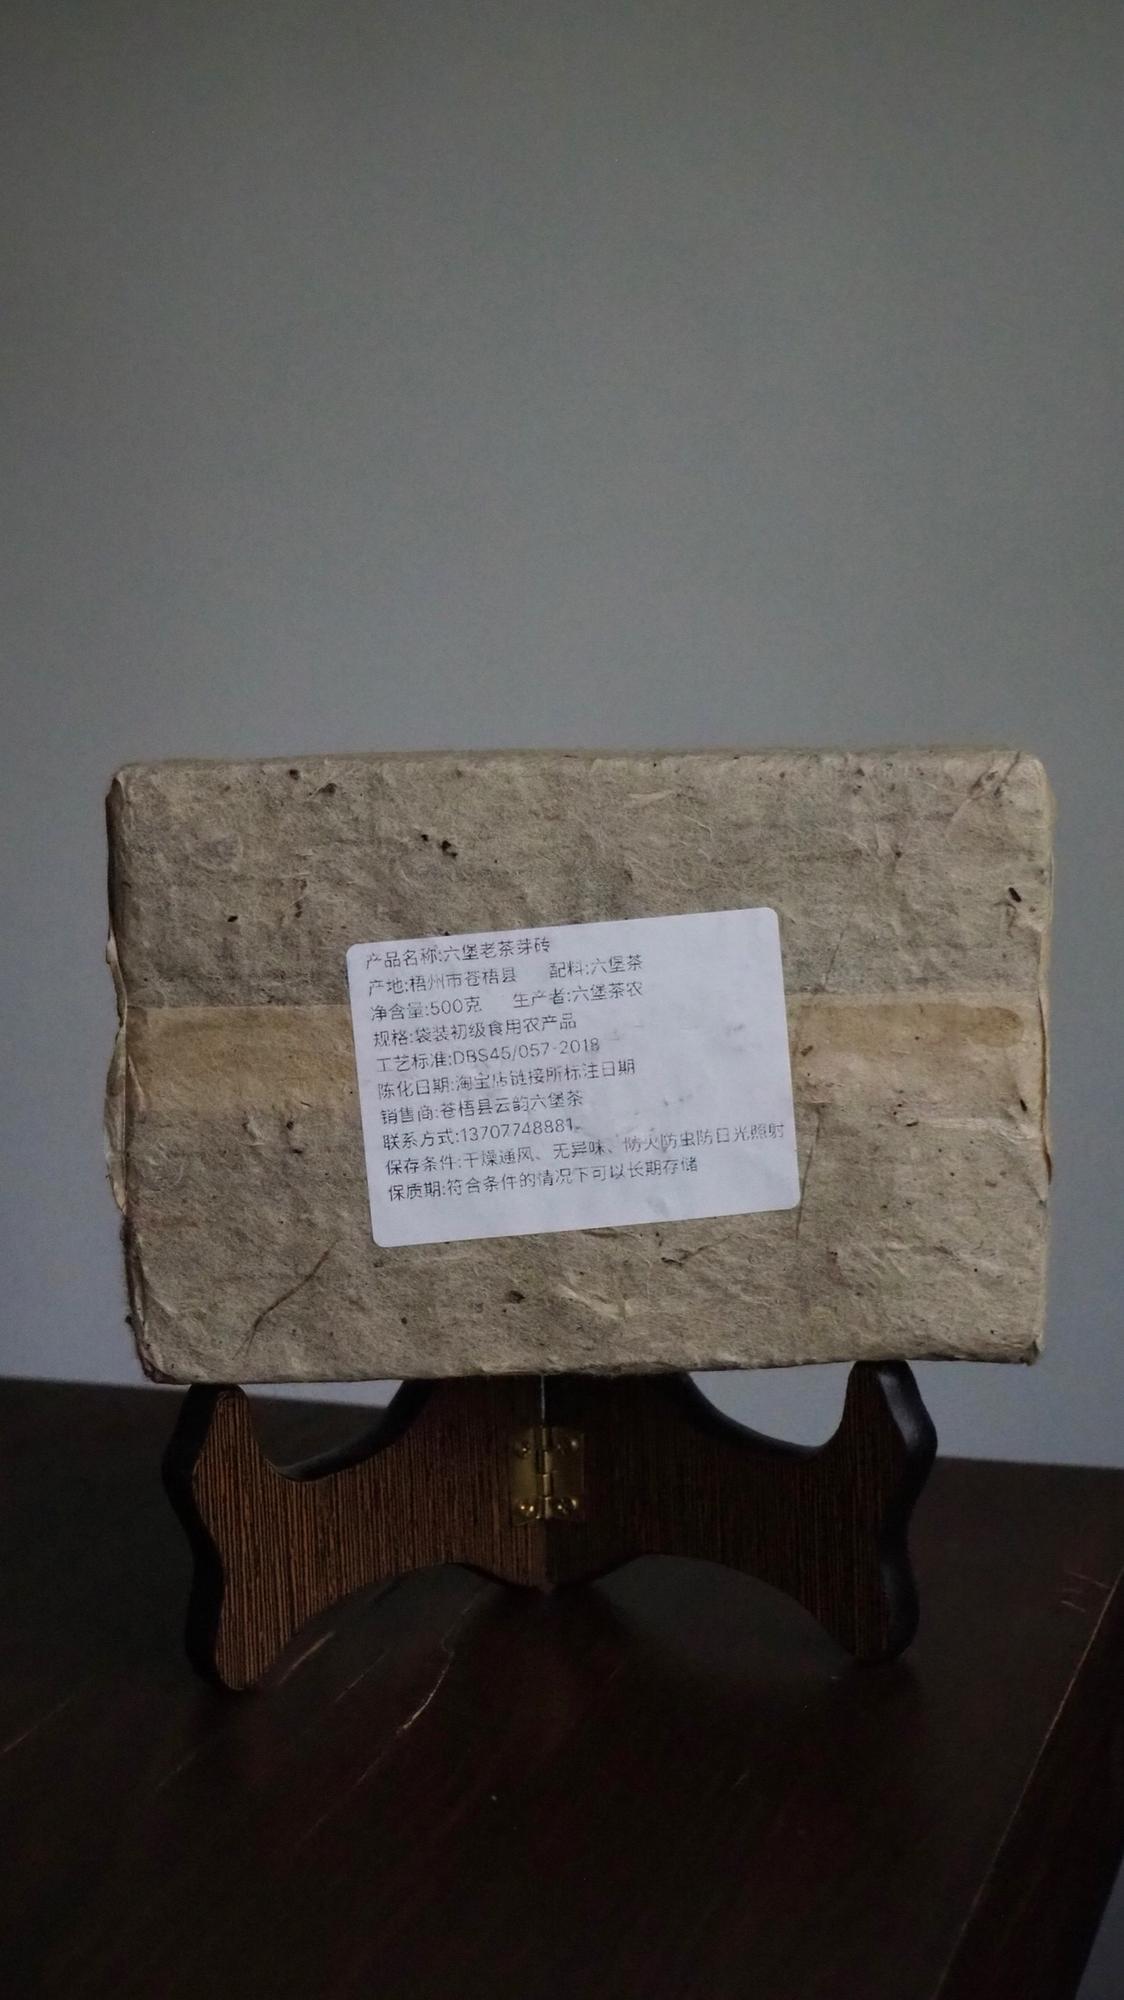 产品名称:六堡老茶芽砖
产地:梧州市苍梧县 配料:六堡茶
净含量:500克 生产者:六堡茶农
规格:袋装初级食用农产品
工艺标准:DBS45/057-2018
陈化日期:淘宝店链接所标注日期
销售商:苍梧县云韵六堡茶
联系方式:13707748881
保存条件:干燥通风、无异味、防火防虫防日光照射
保质期:符合条件的情况下可以长期存储